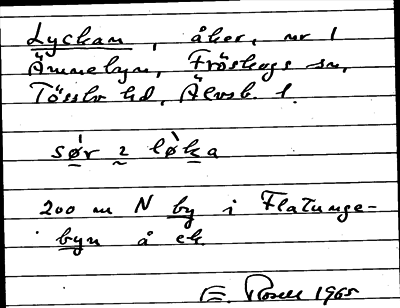 Lyckan, åker, nr 1
Ämnebyn, Fröskogs sn,
Tössbo hd, Älvsb. l.
sø̀r 2 lø̀ka
200 m N by i Flatunge-
byn å ek.
E. Rosell 1965